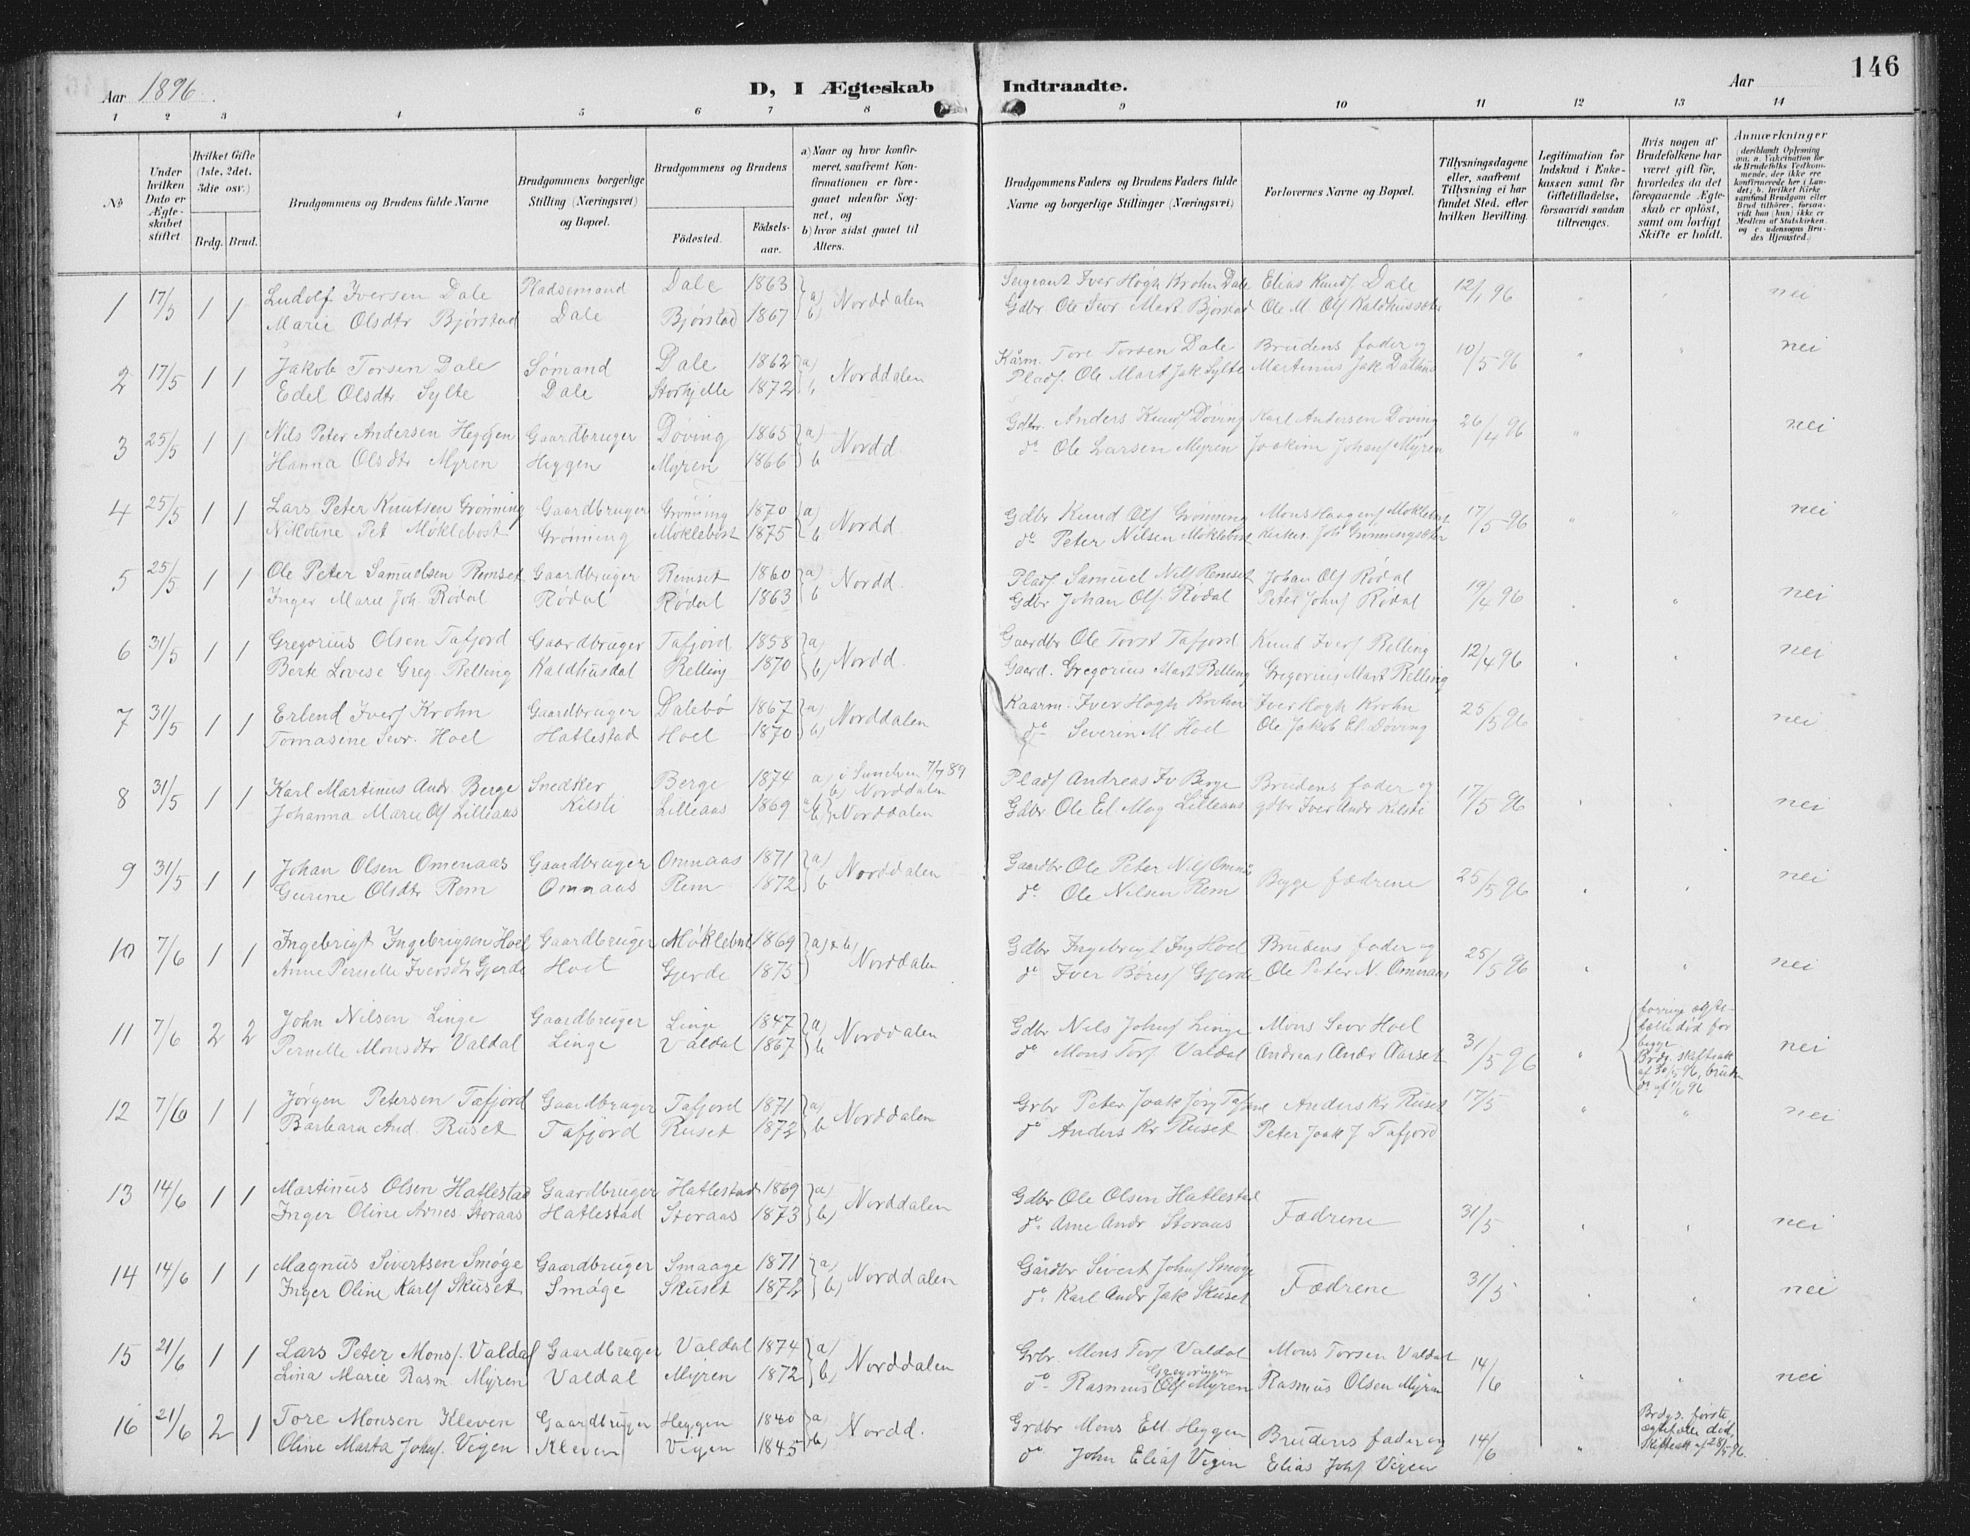 Aar 1896. D, I Ægteskab Indtraadte. Aar 146
1 2 3 4 5 6 7 8 9 10 11 12 13 14
No
Under hvilken Dato er Ægteskabet stiftet.
Hvilket Gifte (1ste, 2det, 3die osv.)
Brdg. Brud.
Brudgommens og Brudens fulde Navne
Brudgommens borgerlige Stilling (Næringsvei) og Bopæl.
Brudgommens og Brudens
Fødested. Fødselsaar.
a) Naar og hvor konfirmeret, saafremt Konfirmationen er foregaaet udenfor Sognet, og
b) hvor sidst gaaet til Alters.
Brudgommens Faders og Brudens Faders fulde Navne og borgerlige Stillinger (Næringsvei)
Forlovernes Navne og Bopæl.
Tillysningsdagene eller, saafremt Tillysning ei har fundet Sted, efter hvilken Bevilling.
Legitimation for Indskud i Enkekassen samt for Giftetilladelse, forsaavidt saadan tiltrænges.
Hvis nogen af Brudefolkene har været gift før, hvorledes da det foregaaende Ægteskab er opløst, samt om lovligt Skifte er holdt.
Anmærkninger
1 17/5 1 1 Ludolf Iversen Dale Pladsemand Dale 1863 a) Norddalen Sergeant Iver Høgh Krohn Dale Elias Knuds Dale 12/1 96 " " nei
Marie Olsdtr Bjørstad Dale Bjørstad 1867 b) Gdbr Ole Sivr Mart Bjørstad Ole M Ols
2 17/5 1 1 Jakob Torsen Dale Sømand Dale 1862 a) Norddalen Kårm. Tore Torsen Dale Brudens fader og 10/5 96 " " nei
Edel Olsdtr Sylte Dale Storhjelle 1872 b Plads. Ole Mart Jak Sylte Martinus Jak
3 25/5 1 1 Nils Peter Andersen Heggen Gaardbruger Døving 1865 a) Nordd. Gdbr. Anders Knuds Døving Karl Andersen Døving 26/4 96 " nei
Hanna Olsdtr Myren Heggen Myren 1866 b do Ole Larsen Myren Joakim Johans Myren
4 25/5 1 1 Lars Peter Knutsen Grønning Gaardbruger Grønning 1870 a) Nordd Gdbr Knud Ols Grønning Mons Haagens Møklebost 17/5 96 " " nei
Nikoline Pet Møklebost Grønning Møklebost 1875 b do Peter Nilsen Møklebost
5 25/5 1 1 Ole Peter Samuelsen Remset Gaardbruger Remset 1860 a) Nordd. Plads. Samuel Nils Remset Johan Ols Rødal 19/4 96 " " nei
Inger Marie Joh. Rødal Rødal Rødal 1863 b Gdbr Johan Ols. Rødal Peter Johs Rødal
6 31/5 1 1 Gregorius Olsen Tafjord Gaardbruger Tafjord 1858 a) Nordd. Gaardbr Ole Torst Tafjord Knud Ivers Relling 12/4 96 " " nei
Berte Lovise Greg. Relling Kaldhusdal Relling 1870 b) Gaard. Gregorius Mart Relling Gregorius Mart Relling
7 31/5 1 1 Erlend Ivers Krohn Gaardbruger Dalebø 1867 a) Norddalen Kaarm. Iver Høgh Krohn Iver Høgh Krohn 25/5 96 " " nei
Tomasine Sevr. Hoel Hatlestad Hoel 1870 b) do Severin M. Hoel Ole Jakob El. Døving
8 31/5 1 1 Karl Martinus Andr. Berge Snedker Berge 1874 a) i 7/7 89 b) Norddalen Plads Andreas Iv Berge Brudens fader og 17/5 96 " " nei
Johanna Marie Ols Lilleaas Kilsti Lilleaas 1869 a b Norddalen Gdbr Ole El. Mag Lilleaas gdbr Iver Andr Kilsti
9 31/5 1 1 Johan Olsen Omenaas Gaardbruger Ommaas 1871 a) Norddalen Gaardbr Ole Peter Nils Begge fædrene 25/5 96 " " nei
Gurine Olsdtr Rem Ommaas Rem 1872 b do Ole Nilsen Rem
10 7/6 1 1 Ingebrigt Ingebrigsen Hoel Gaardbruger Møklebost 1869 a) & b) Norddalen Gdbr Ingebrigt Ing Hoel Brudens fader og 25/5 96 " " nei
Anne Pernille Iversdtr Gjerde Hoel Gjerde 1875 do Iver Børes Gjerde Ole Peter N. Ommaas
11 7/6 2 2 John Nilsen Linge Gaardbruger Linge 1847 a) Norddalen Gdbr Nils Johns Linge Mons Sevr Hoel 31/5 96 " forrige ægtefælle død for begge Brdg. skifteatt af 30/5 96, brud. do af 1/6 96 nei
Pernille Monsdtr Valdal Linge Valdal 1867 b do Mons Tors Valdal Andreas Andr Aarset
12 7/6 1 1 Jørgen Petersen Tafjord Gaardbruger Tafjord 1871 a) Norddalen Grbr Peter Joak Jørg Anders Kr Ruset 17/5 " " nei
Barbara And. Ruset Tafjord Ruset 1872 b do Anders Kr Ruset Peter Joak J Tafjord
13 14/6 1 1 Martinus Olsen Hatlestad Gaardbruger Hatlestad 1869 a) Norddalen Gdbr Ole Olsen Hatlestad Fædrene 31/5 " " nei
Inger Oline Arnes. Storaas Hatlestad Storaas 1873 b) do Arne Andr Storaas
14 14/6 1 1 Magnus Sivertsen Smøge Gaardbruger Smaage 1871 a) Norddalen Gårdbr Sivert Johns Smøge Fædrene 31/5 " " nei
Inger Oline Karls Skuset Smøge Skuset 1872 b) do Karl Andr Jak Skuset
15 21/6 1 1 Lars Peter Mons. Valdal Gaardbruger Valdal 1874 a) Norddalen Grbr. Mons Tors Valdal Mons Torsen Valdal 14/6 " " nei
Lina Marie Rasm Myren Valdal Myren 1872 b) do Rasmus Ols Myren Rasmus Olsen Myren
16 21/6 2 1 Tore Monsen Kleven Gaardbruger Heggen 1840 a) Nordd. Grdbr Mons Ell. Heggen Brudens fader og 14/6 " Brdgs. første ægtefælle død, Skifteatt af 28/5 96.
Oline Marta Johns. Vigen Kleven Vigen 1845 b) do John Elias Vigen Elias Johs Vigen